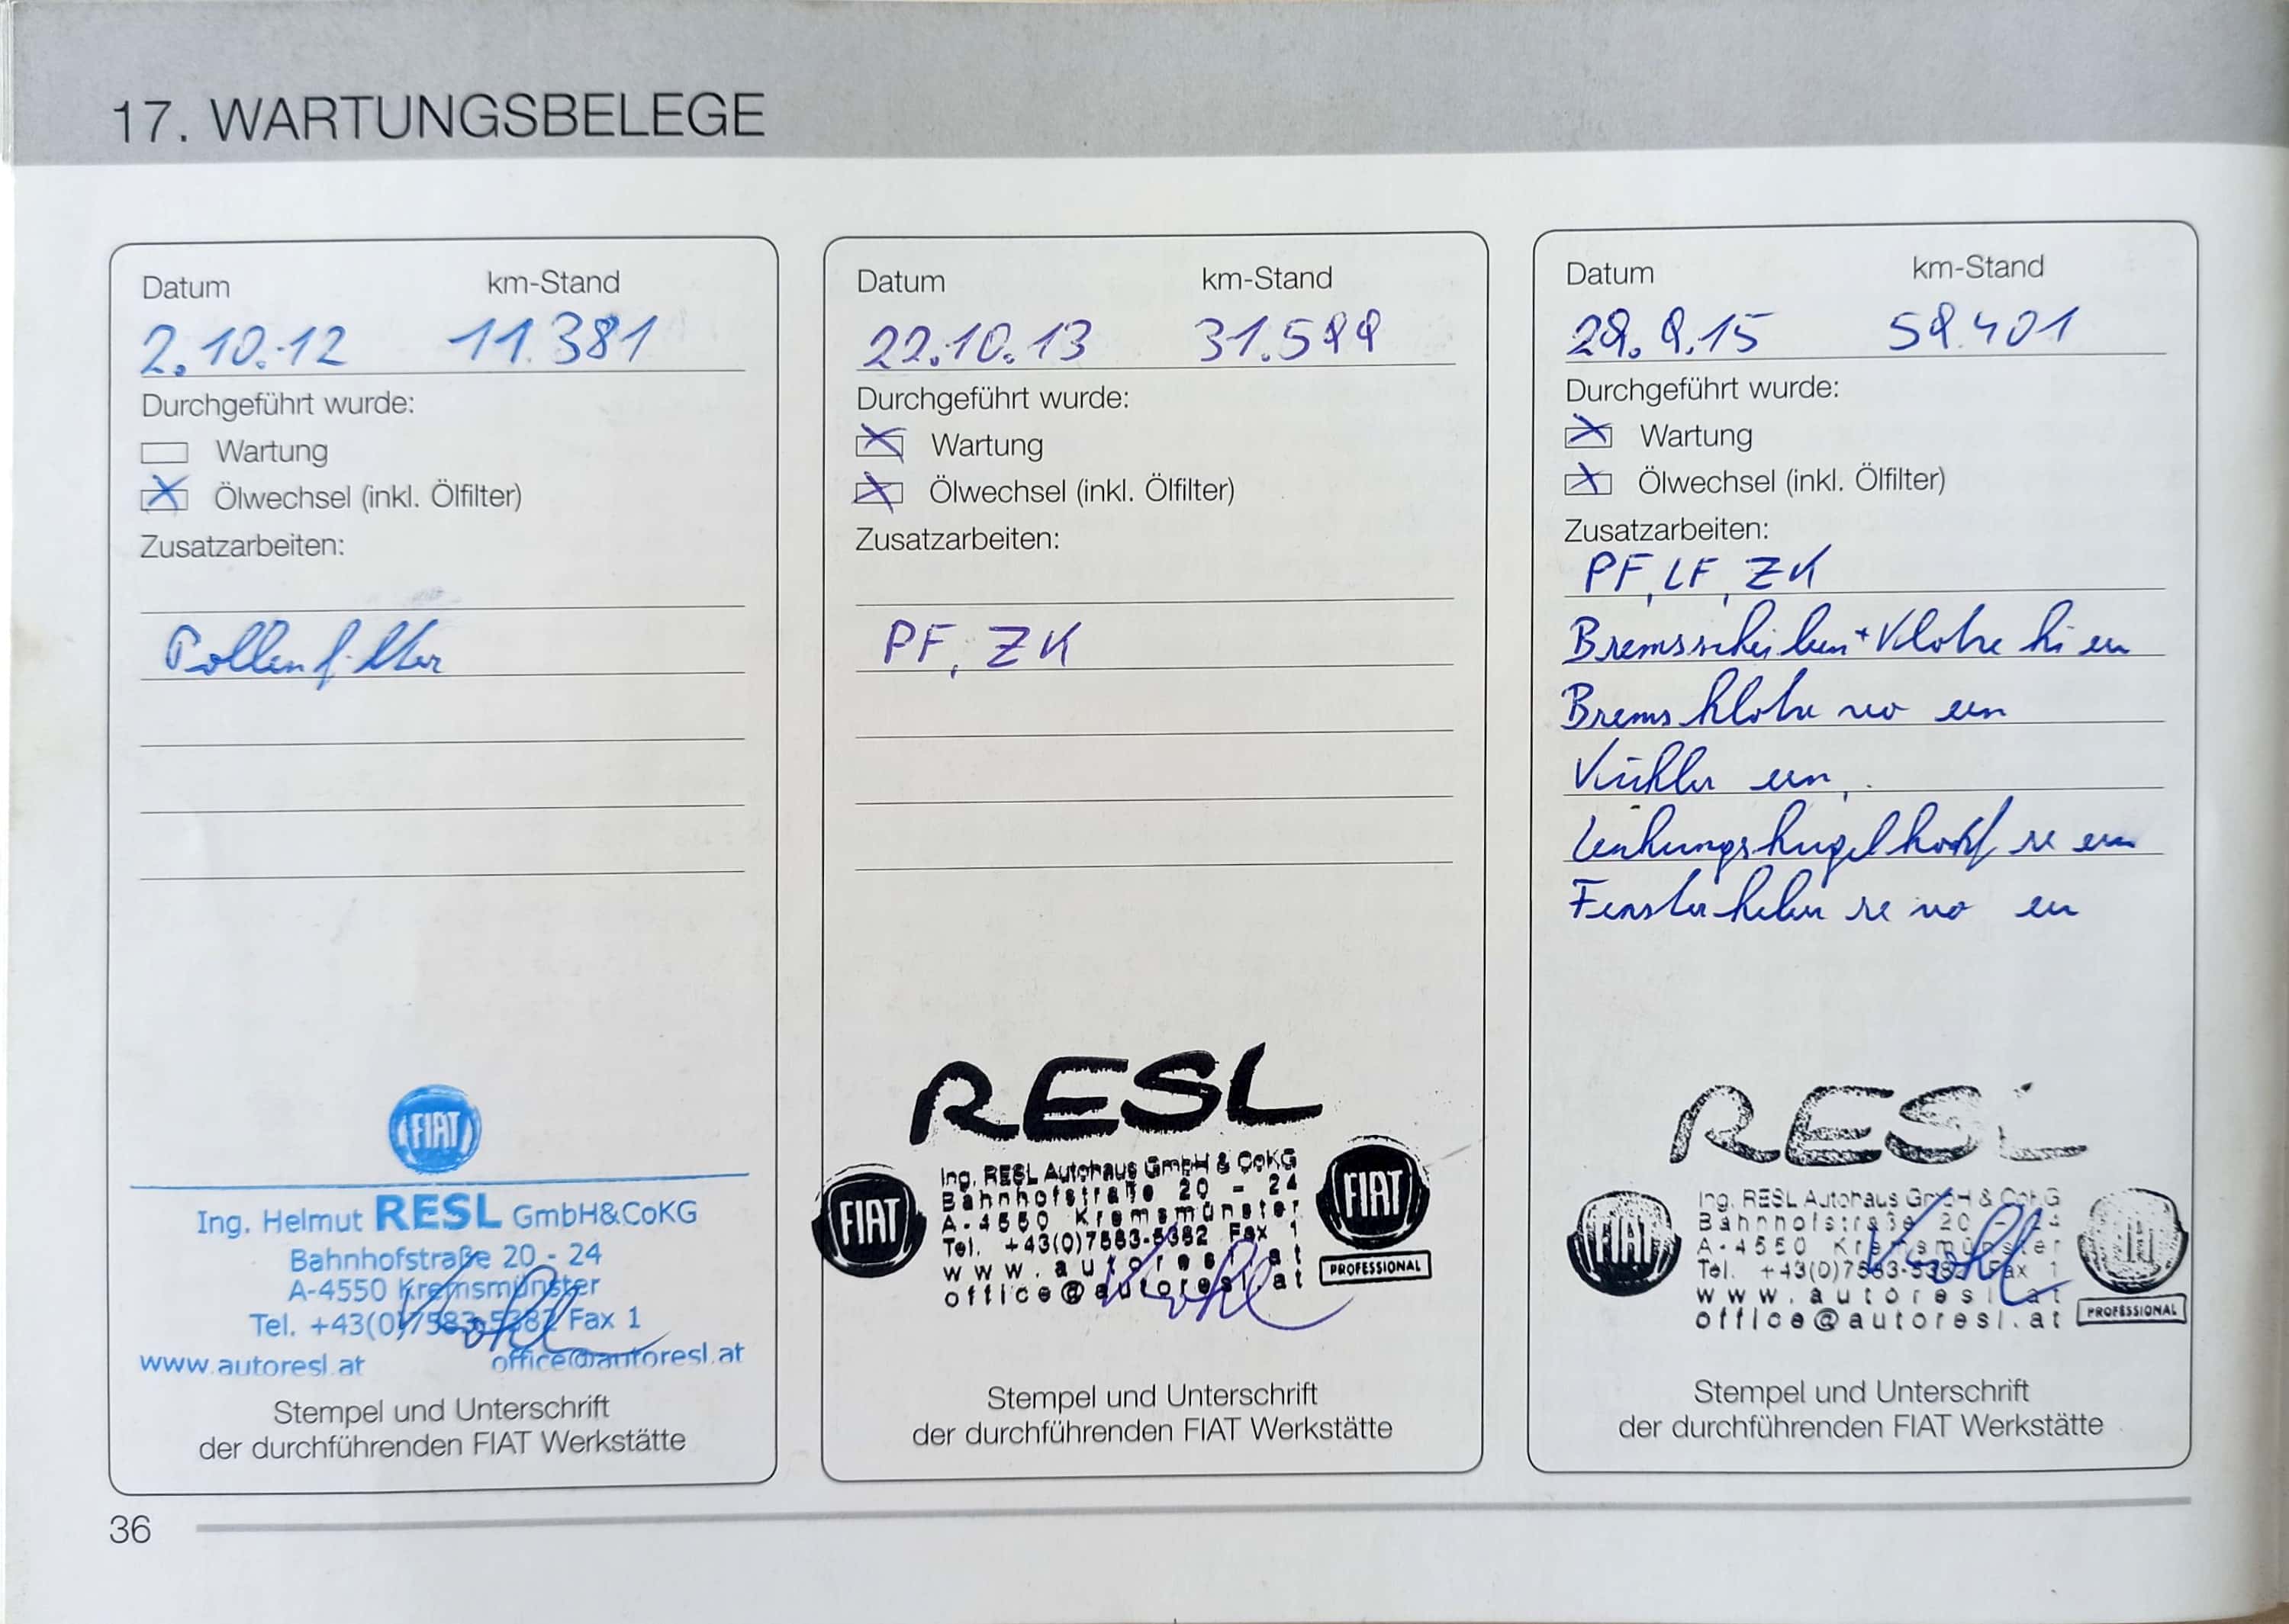 17. WARTUNGSBELEGE
Datum km-Stand
2.10.12 11.381
Durchgeführt wurde:
Wartung
Ölwechsel (inkl. Ölfilter)
Zusatzarbeiten:
Pollenfilter
FIAT
Ing. Helmut RESL GmbH&CoKG
Bahnhofstraße 20 - 24
A-4550 Kremsmünster
Tel. +43(0)7583-5382 Fax 1
www.autoresl.at office@autoresl.at
Stempel und Unterschrift
der durchführenden FIAT Werkstätte
Datum km-Stand
22.10.13 31.599
Durchgeführt wurde:
Wartung
Ölwechsel (inkl. Ölfilter)
Zusatzarbeiten:
PF, ZK
RESL
Ing. RESL Autohaus GmbH & CoKG
Bahnhofstraße 20 - 24
A-4550 Kremsmünster
Tel. +43(0)7583-5382 Fax 1
www.autoresl.at
office@autoresl.at
FIAT
FIAT
PROFESSIONAL
Stempel und Unterschrift
der durchführenden FIAT Werkstätte
Datum km-Stand
29.9.15 59.401
Durchgeführt wurde:
Wartung
Ölwechsel (inkl. Ölfilter)
Zusatzarbeiten:
PF, LF, ZK
Bremsscheiben + Klötze hi ern
Bremsklötze vo ern
Kühler ern
Lenkungskugelkopf re ern
Fensterheber re vo ern
RESL
Ing. RESL Autohaus GmbH & CoKG
Bahnhofstraße 20 - 24
A-4550 Kremsmünster
Tel. +43(0)7583-5382 Fax 1
www.autoresl.at
office@autoresl.at
FIAT
FIAT
PROFESSIONAL
Stempel und Unterschrift
der durchführenden FIAT Werkstätte
36